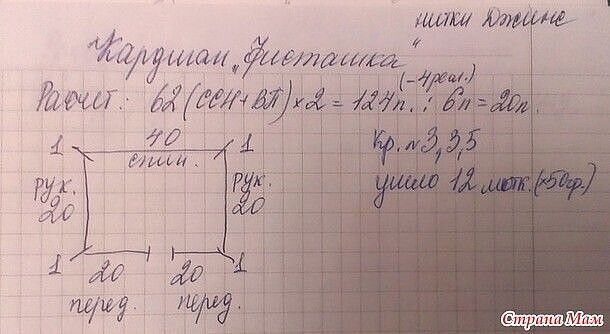 нитки Джинс
Кардиган „Фисташка“
(-4регл.)
Расчет: 62(ССН+ВП)×2=124п. : 6п=20п.
1 40 1
спин.
Кр. №3, 3,5
рук. рук.
20 20
ушло 12 мотк. (×50гр.)
1 20 20 1
перед. перед.
Страна Мам